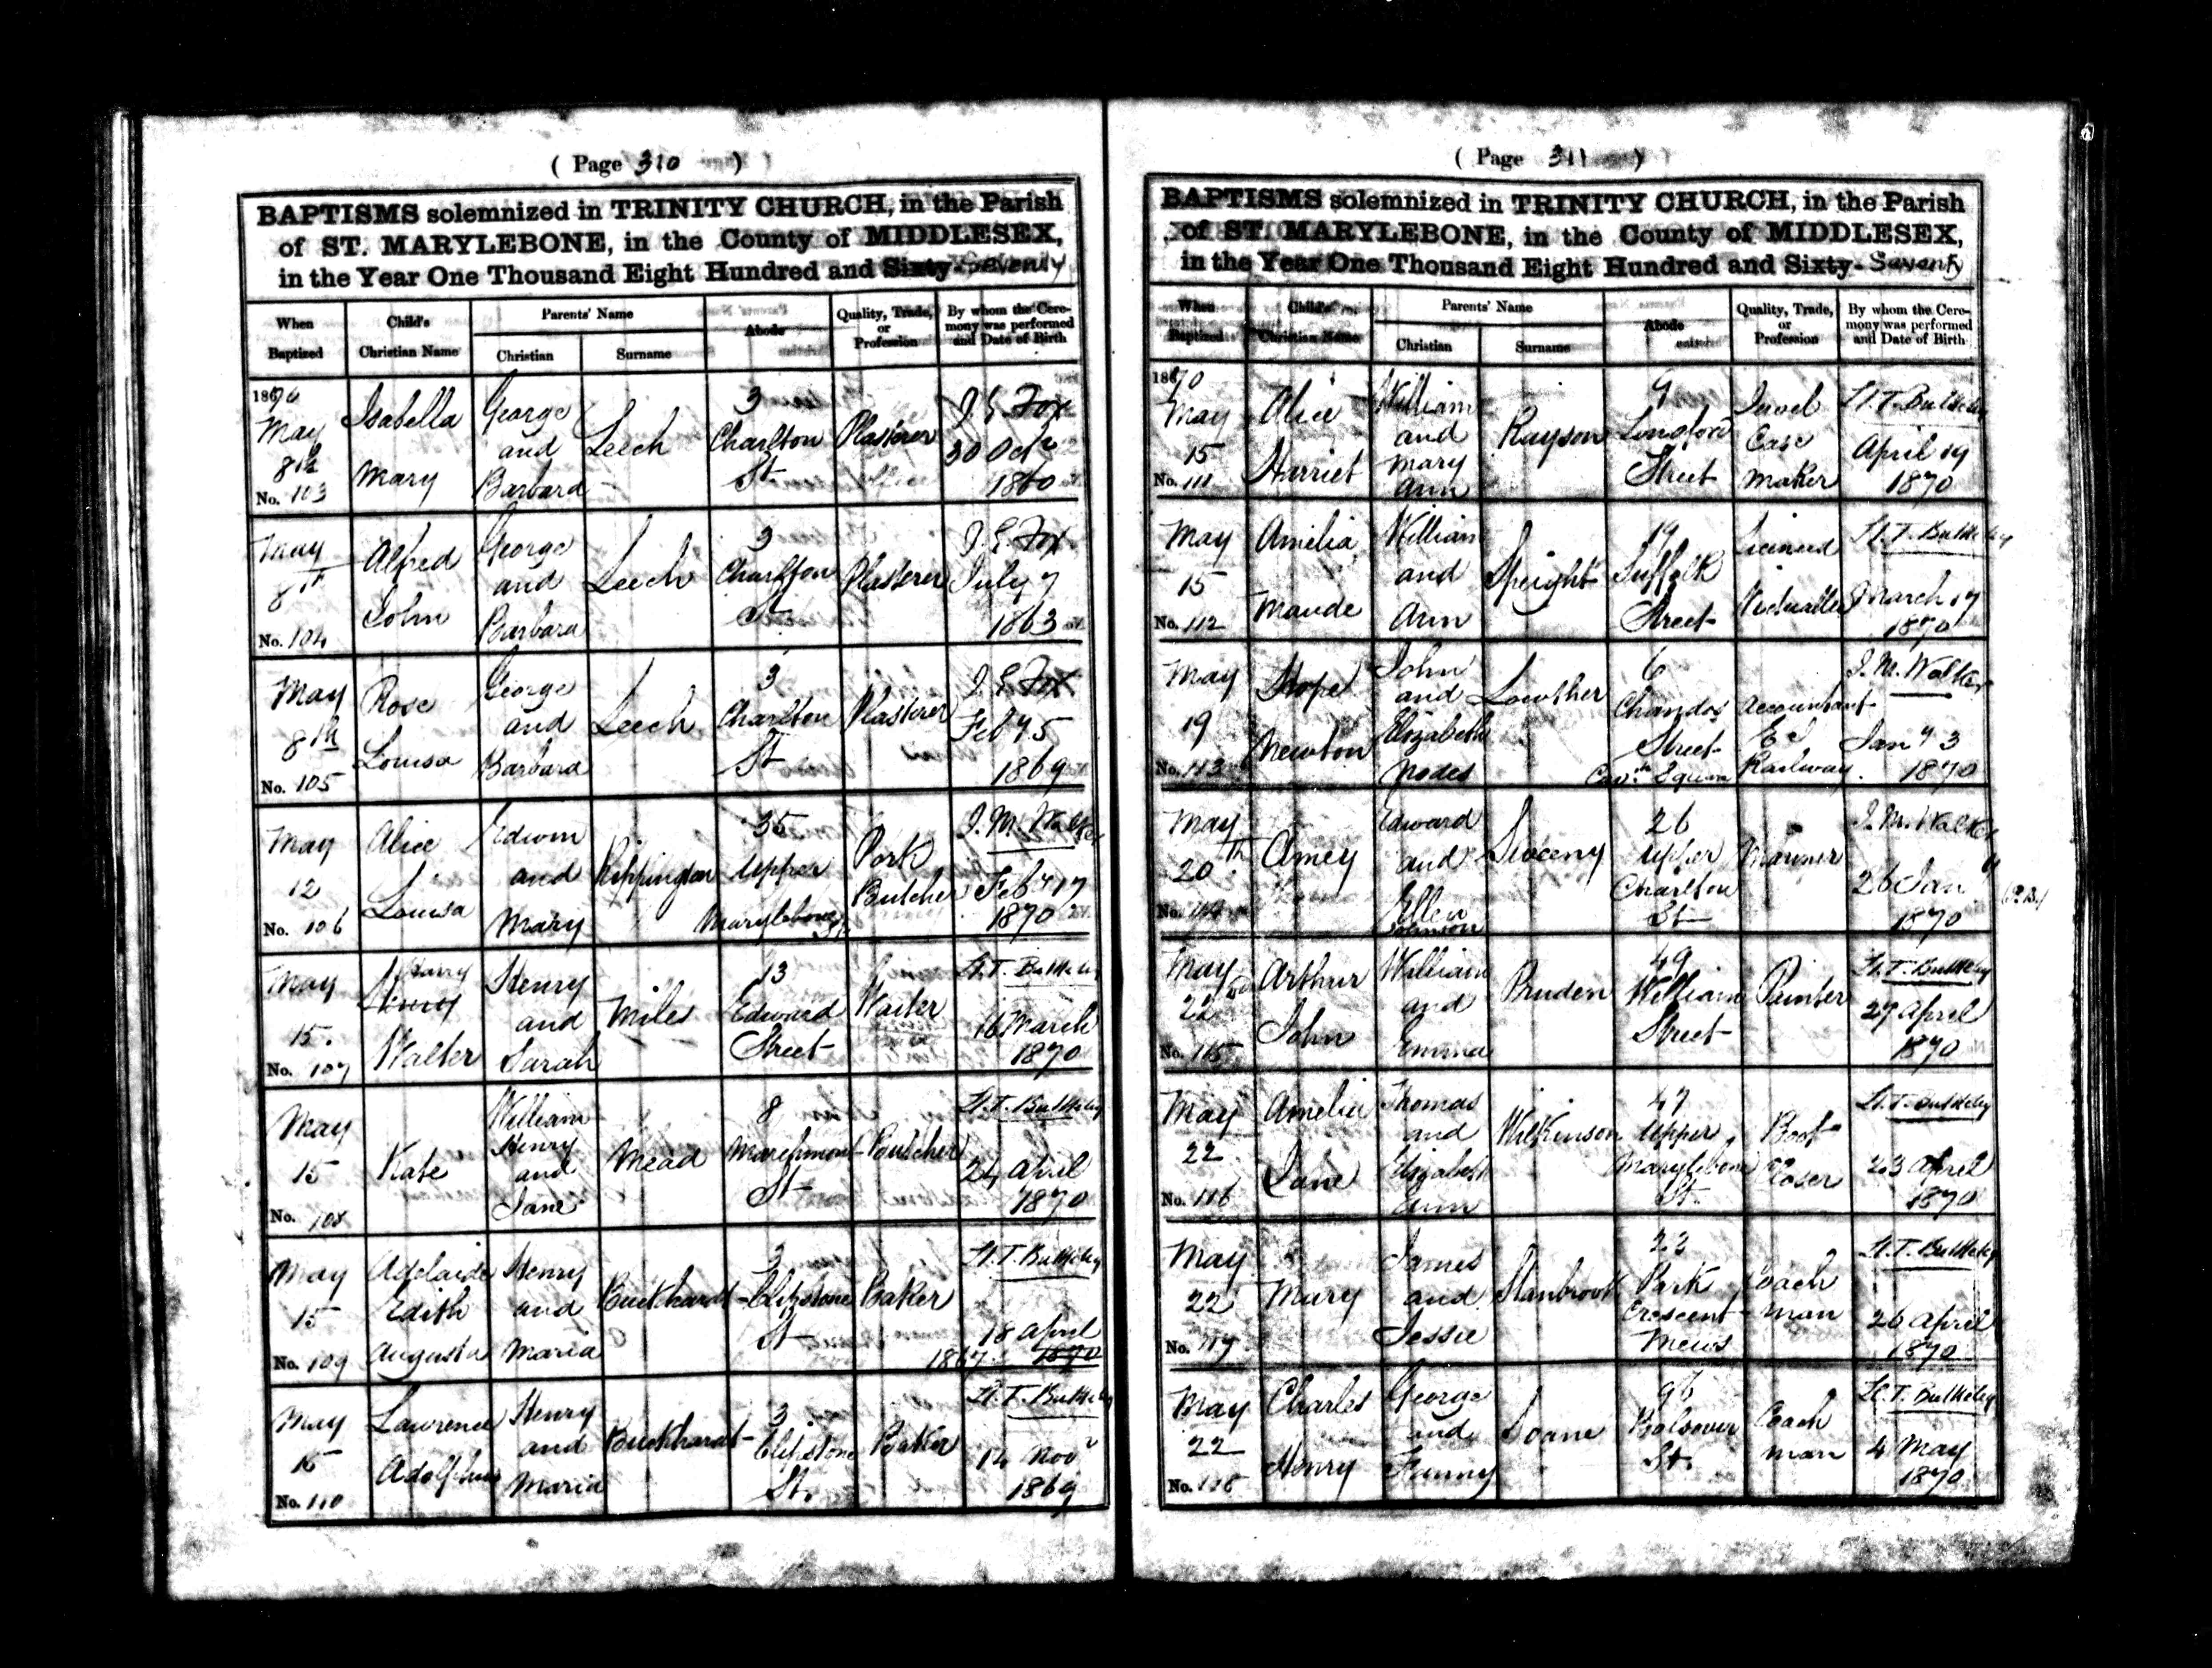 ( Page 310 )
BAPTISMS solemnized in TRINITY CHURCH, in the Parish
of ST. MARYLEBONE, in the County of MIDDLESEX,
in the Year One Thousand Eight Hundred and Sixty- Seventy
When Baptized | Child's Christian Name | Parents' Name Christian | Surname | Abode | Quality, Trade, or Profession | By whom the Ceremony was performed and Date of Birth
1870 May 8th No. 103 | Isabella Mary | George and Barbara | Leech | 3 Charlton St | Plasterer | J. E. Fox 30 Octr 1860
May 8th No. 104 | Alfred John | George and Barbara | Leech | 3 Charlton St | Plasterer | J. E. Fox July 7 1863
May 8th No. 105 | Rose Louisa | George and Barbara | Leech | 3 Charlton St | Plasterer | J. E. Fox Feby 5 1869
May 12 No. 106 | Alice Louisa | Edwin and Mary | Rippington | 35 Upper Marylebone St | Pork Butcher | J. M. Walker Feby 17 1870
May 15. No. 107 | Harry Henry Walter | Henry and Sarah | Miles | 13 Edward Street | Waiter | H. T. Bulkeley 16 March 1870
May 15 No. 108 | Kate | William Henry and Jane | Mead | 8 Marchmont St | Butcher | H. T. Bulkeley 24 April 1870
May 15 No. 109 | Adelaide Edith Augusta | Henry and Maria | Buckhardt | 3 Clipstone St | Baker | H. T. Bulkeley 18 April 1867. 1870
May 15 No. 110 | Lawrence Adolphus | Henry and Maria | Buckhardt | 3 Clipstone St. | Baker | H. T. Bulkeley 14 Novr 1869
( Page 311 )
BAPTISMS solemnized in TRINITY CHURCH, in the Parish
of ST. MARYLEBONE, in the County of MIDDLESEX,
in the Year One Thousand Eight Hundred and Sixty- Seventy
When Baptized | Child's Christian Name | Parents' Name Christian | Surname | Abode | Quality, Trade, or Profession | By whom the Ceremony was performed and Date of Birth
1870 May 15 No. 111 | Alice Harriet | William and Mary Ann | Rayson | 9 Longford Street | Jewel Case Maker | H. T. Bulkeley April 19 1870
May 15 No. 112 | Amelia Maude | William and Ann | Speight | 19 Suffolk Street | Licensed Victualler | H. T. Bulkeley March 17 1870
May 19 No. 113 | Hope Newton | John and Elizabeth | Lowther | 6 Chandos Street Cavdh Square | Accountant Railway. | J. M. Walker Jany 3 1870
May 20th No. 114 | Amey | Edward and Ellen Johnson | | 26 Upper Charlton St | Mariner | J. M. Walker 26 Jany 1870
May 22nd No. 115 | Arthur John | William and Emma | Pruden | 49 William Street | Painter | H. T. Bulkeley 27 April 1870
May 22 No. 116 | Amelia Jane | Thomas and Elizabeth Ann | Wilkinson | 47 Upper Marylebone St. | Boot Closer | H. T. Bulkeley 23 April 1870
May 22 No. 117 | Mary | James and Jessie | Stanbrook | 23 Park Crescent Mews | Coach man | H. T. Bulkeley 26 April 1870
May 22 No. 118 | Charles Henry | George and Fanny | Soane | 96 Bolsover St. | Coach man | H. T. Bulkeley 4 May 1870